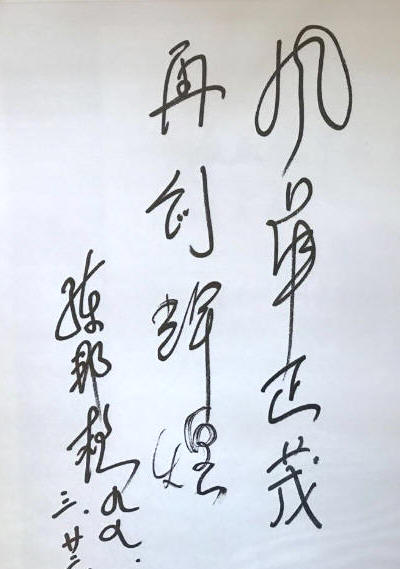 风华正茂
再创辉煌
九九.
三.廿